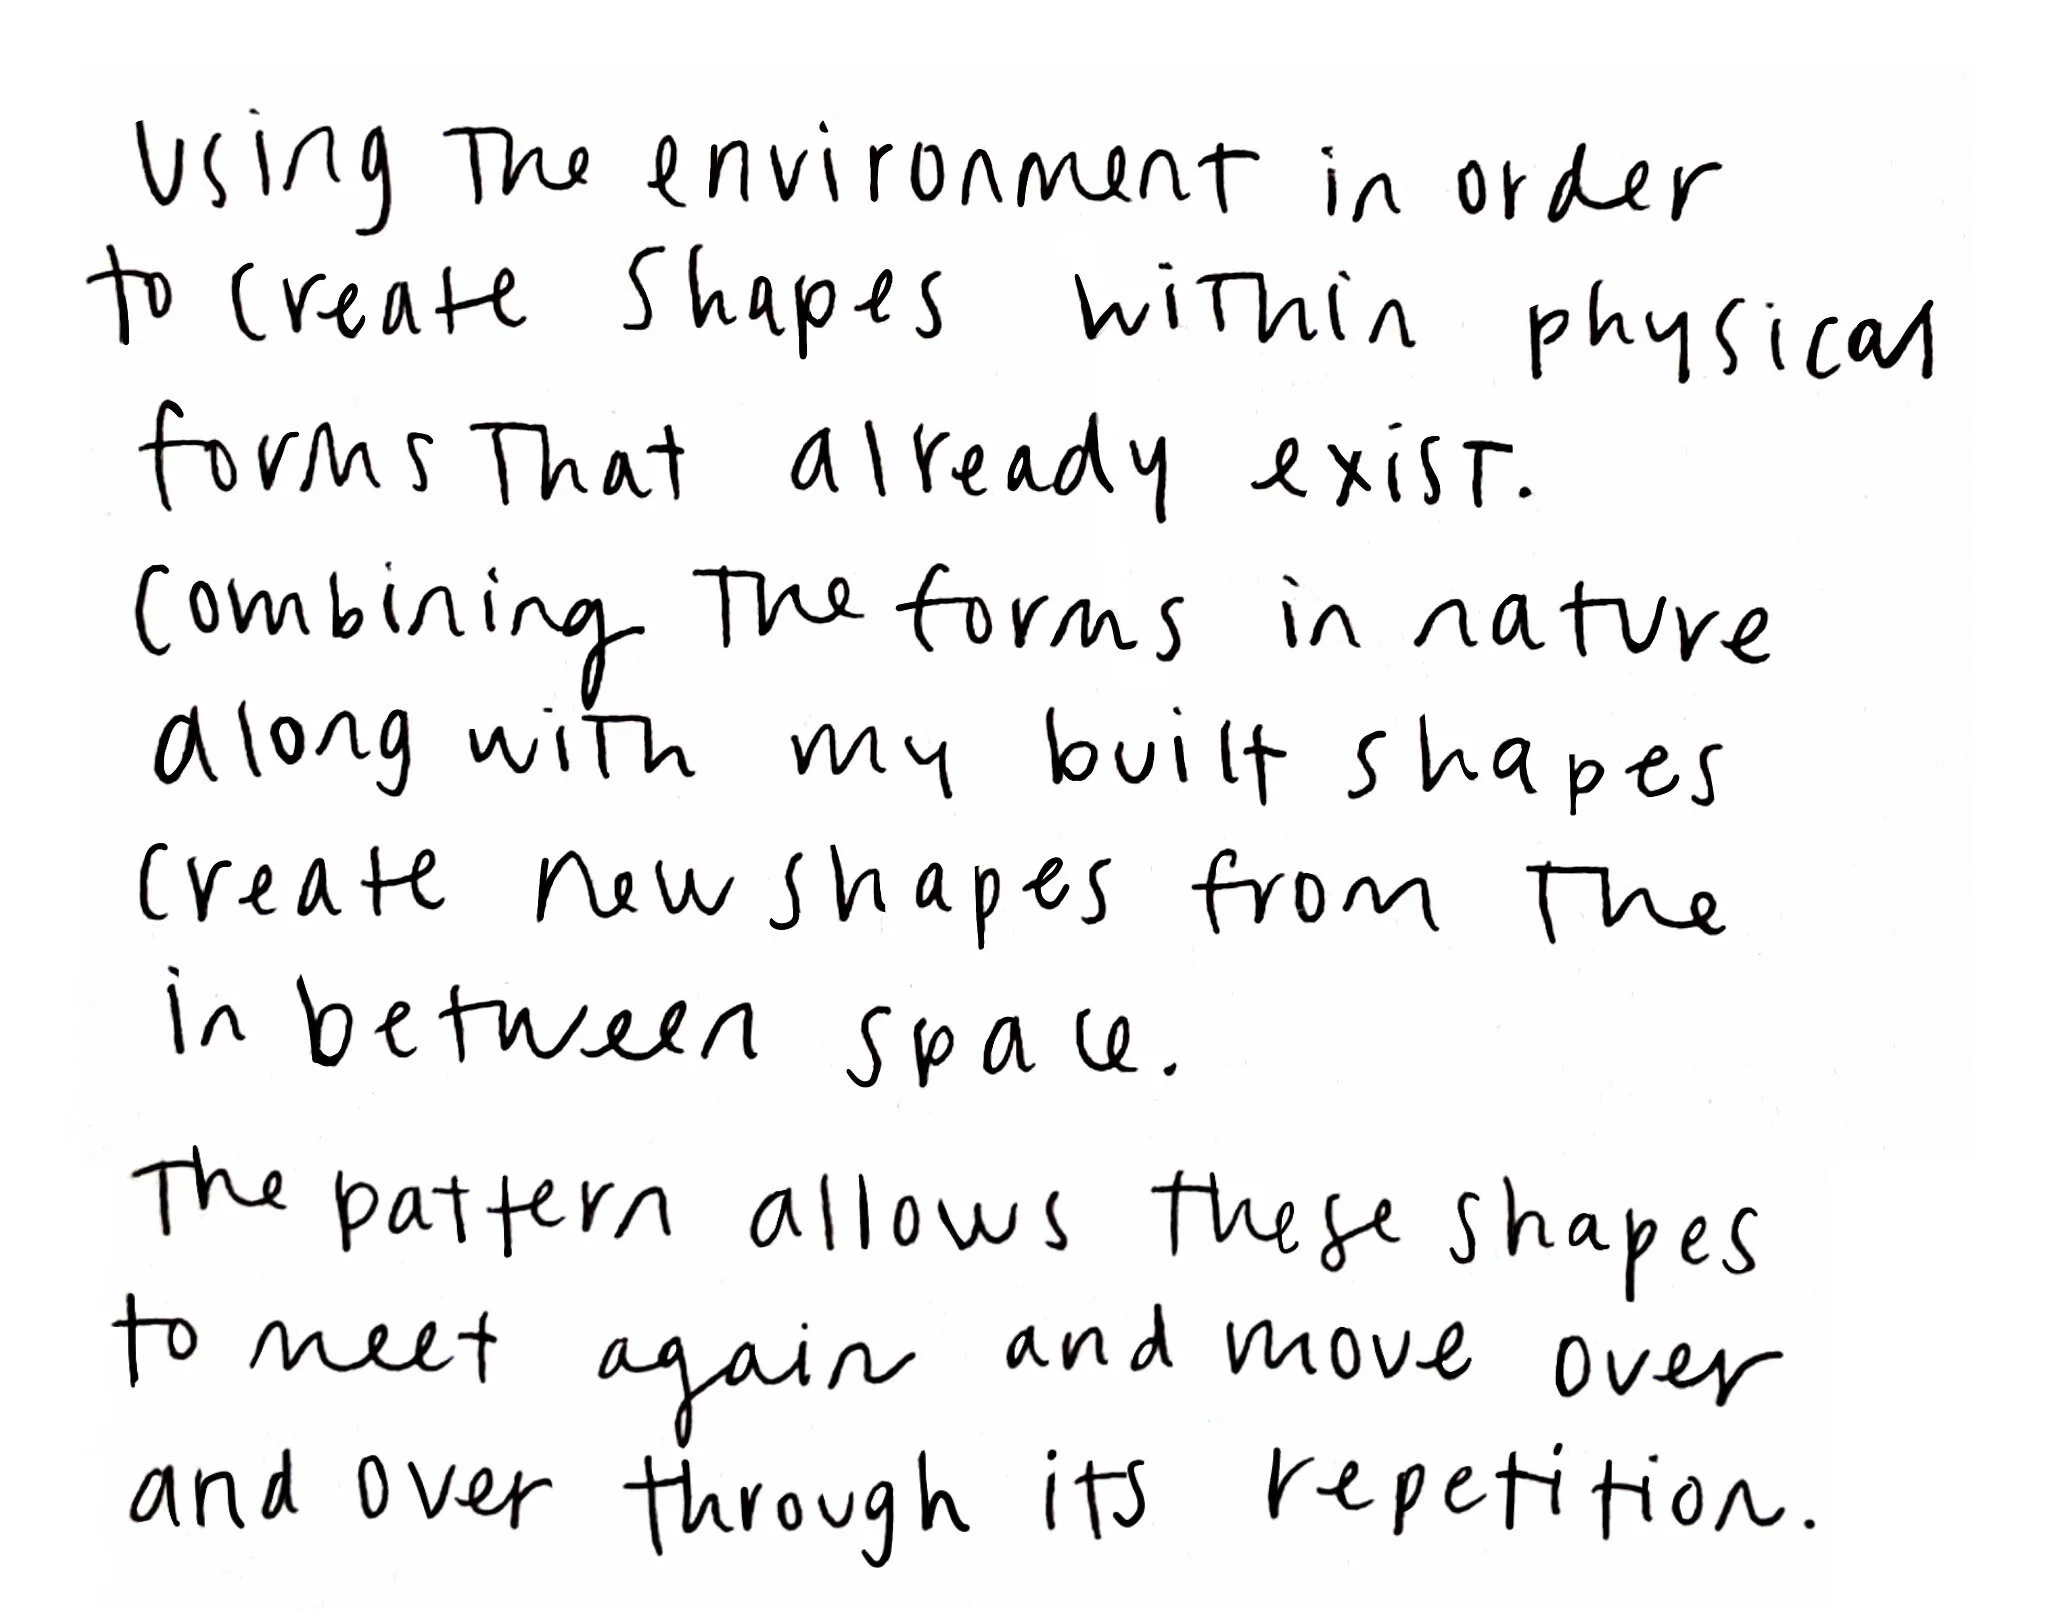 Using The environment in order
to create shapes within physical
forms That already exist.
Combining The forms in nature
along with my built shapes
create new shapes from The
in between space.
The pattern allows these shapes
to meet again and move over
and over through its repetition.